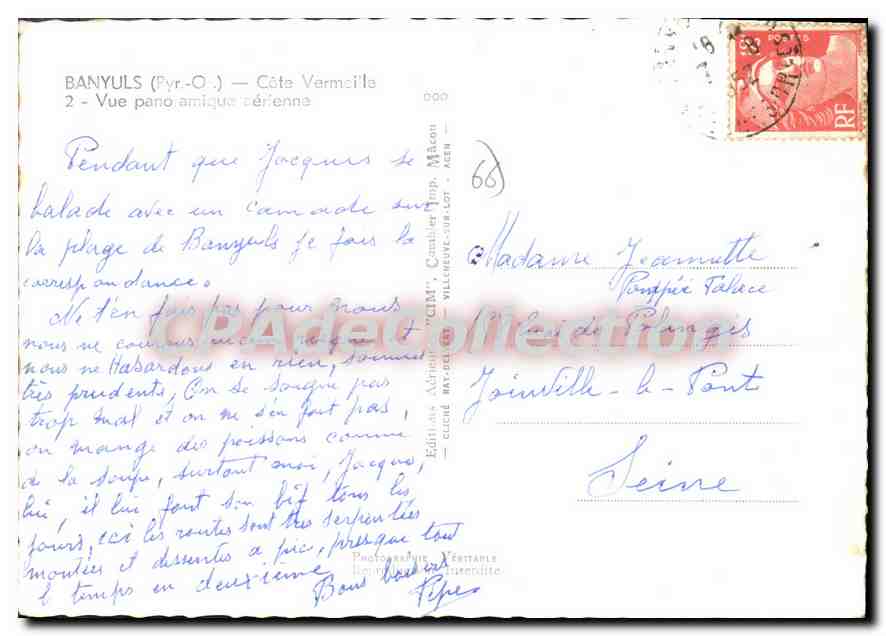 BANYULS (Pyr.-O.) — Côte Vermeille
2 - Vue panoramique aérienne
Pendant que Jacques se
balade avec un camarade sur
la plage de Banyuls je fais la
correspondance.
Ne t'en fais pas pour nous
nous ne courons aucun risque et
nous ne Hasardons en rien, sommes
très prudents, On se soigne pas
trop mal et on ne s'en fait pas,
on mange des poissons comme
de la soupe, surtout moi, Jacques,
lui, il lui faut son bif tous les
jours, ici les routes sont très serpentées
montées et dessentes a pic, presque tout
le temps en deuxième
Bons baisers
Pépé
Editions Aériennes "CIM", Combier Imp. Mâcon
— CLICHÉ RAY-DELVERT - VILLENEUVE-SUR-LOT - AGEN —
PHOTOGRAPHIE VÉRITABLE
Interdite
POSTES
RF
66
Madame Jeannette
Pompéi Palace
Quai de Polangis
Joinville-le-Pont
Seine
CPAdeCollection